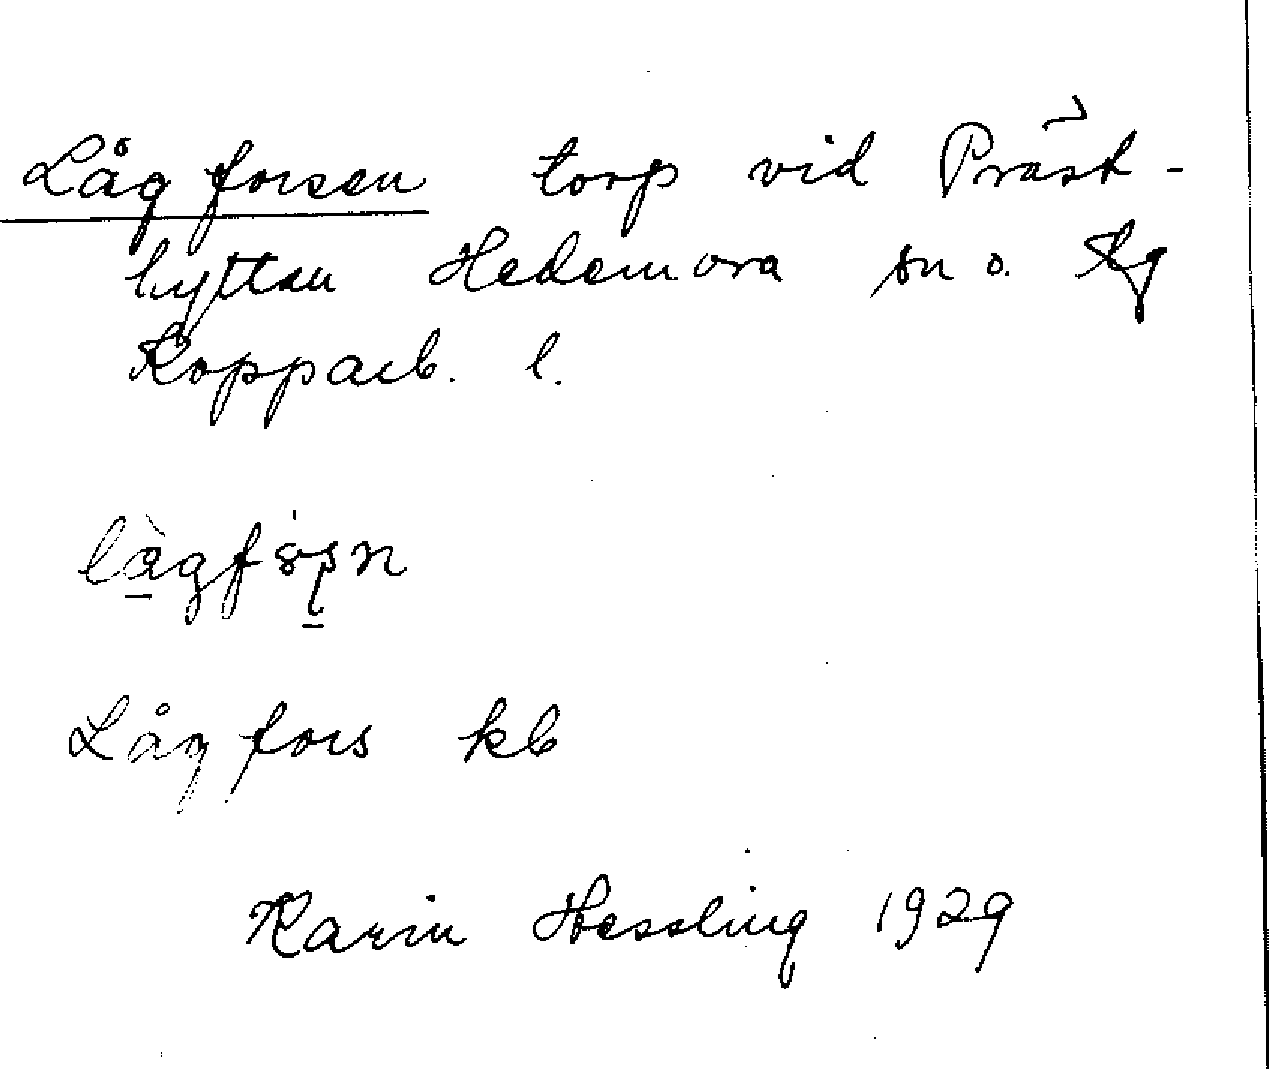 Lågforsen torp vid Präst-
hyttan Hedemora sn o. tg
Kopparb. l.
làgfo̍ṣn
Lågfors kb
Karin Hessling 1929